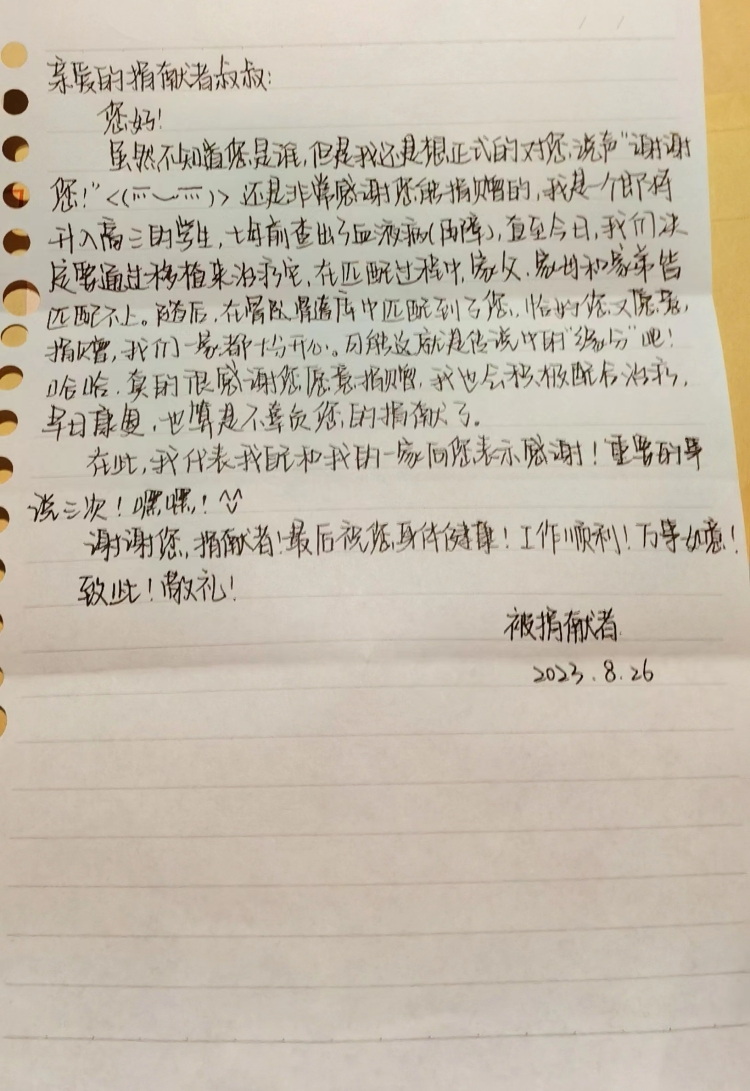 亲爱的捐献者叔叔：
您好！
虽然不知道您是谁，但是我还是想正式的对您说声“谢谢
您！”<(￣︶￣)> 还是非常感谢您能捐赠的，我是一个即将
升入高三的学生，七年前查出了血液病(再障)，直至今日，我们决
定要通过移植来治疗它，在匹配过程中，家父、家母和家弟皆
匹配不上。随后，在骨髓库中匹配到了您，恰好您又愿意
捐赠，我们一家都十分开心。可能这就是传说中的“缘分”吧！
哈哈，真的很感谢您愿意捐赠，我也会积极配合治疗，
早日康复，也算是不辜负您的捐献了。
在此，我代表我和我的一家向您表示感谢！重要的事
说三次！嘿嘿！^U^
谢谢您，捐献者！最后祝您身体健康！工作顺利！万事如意！
致此！敬礼！
被捐献者
2023.8.26